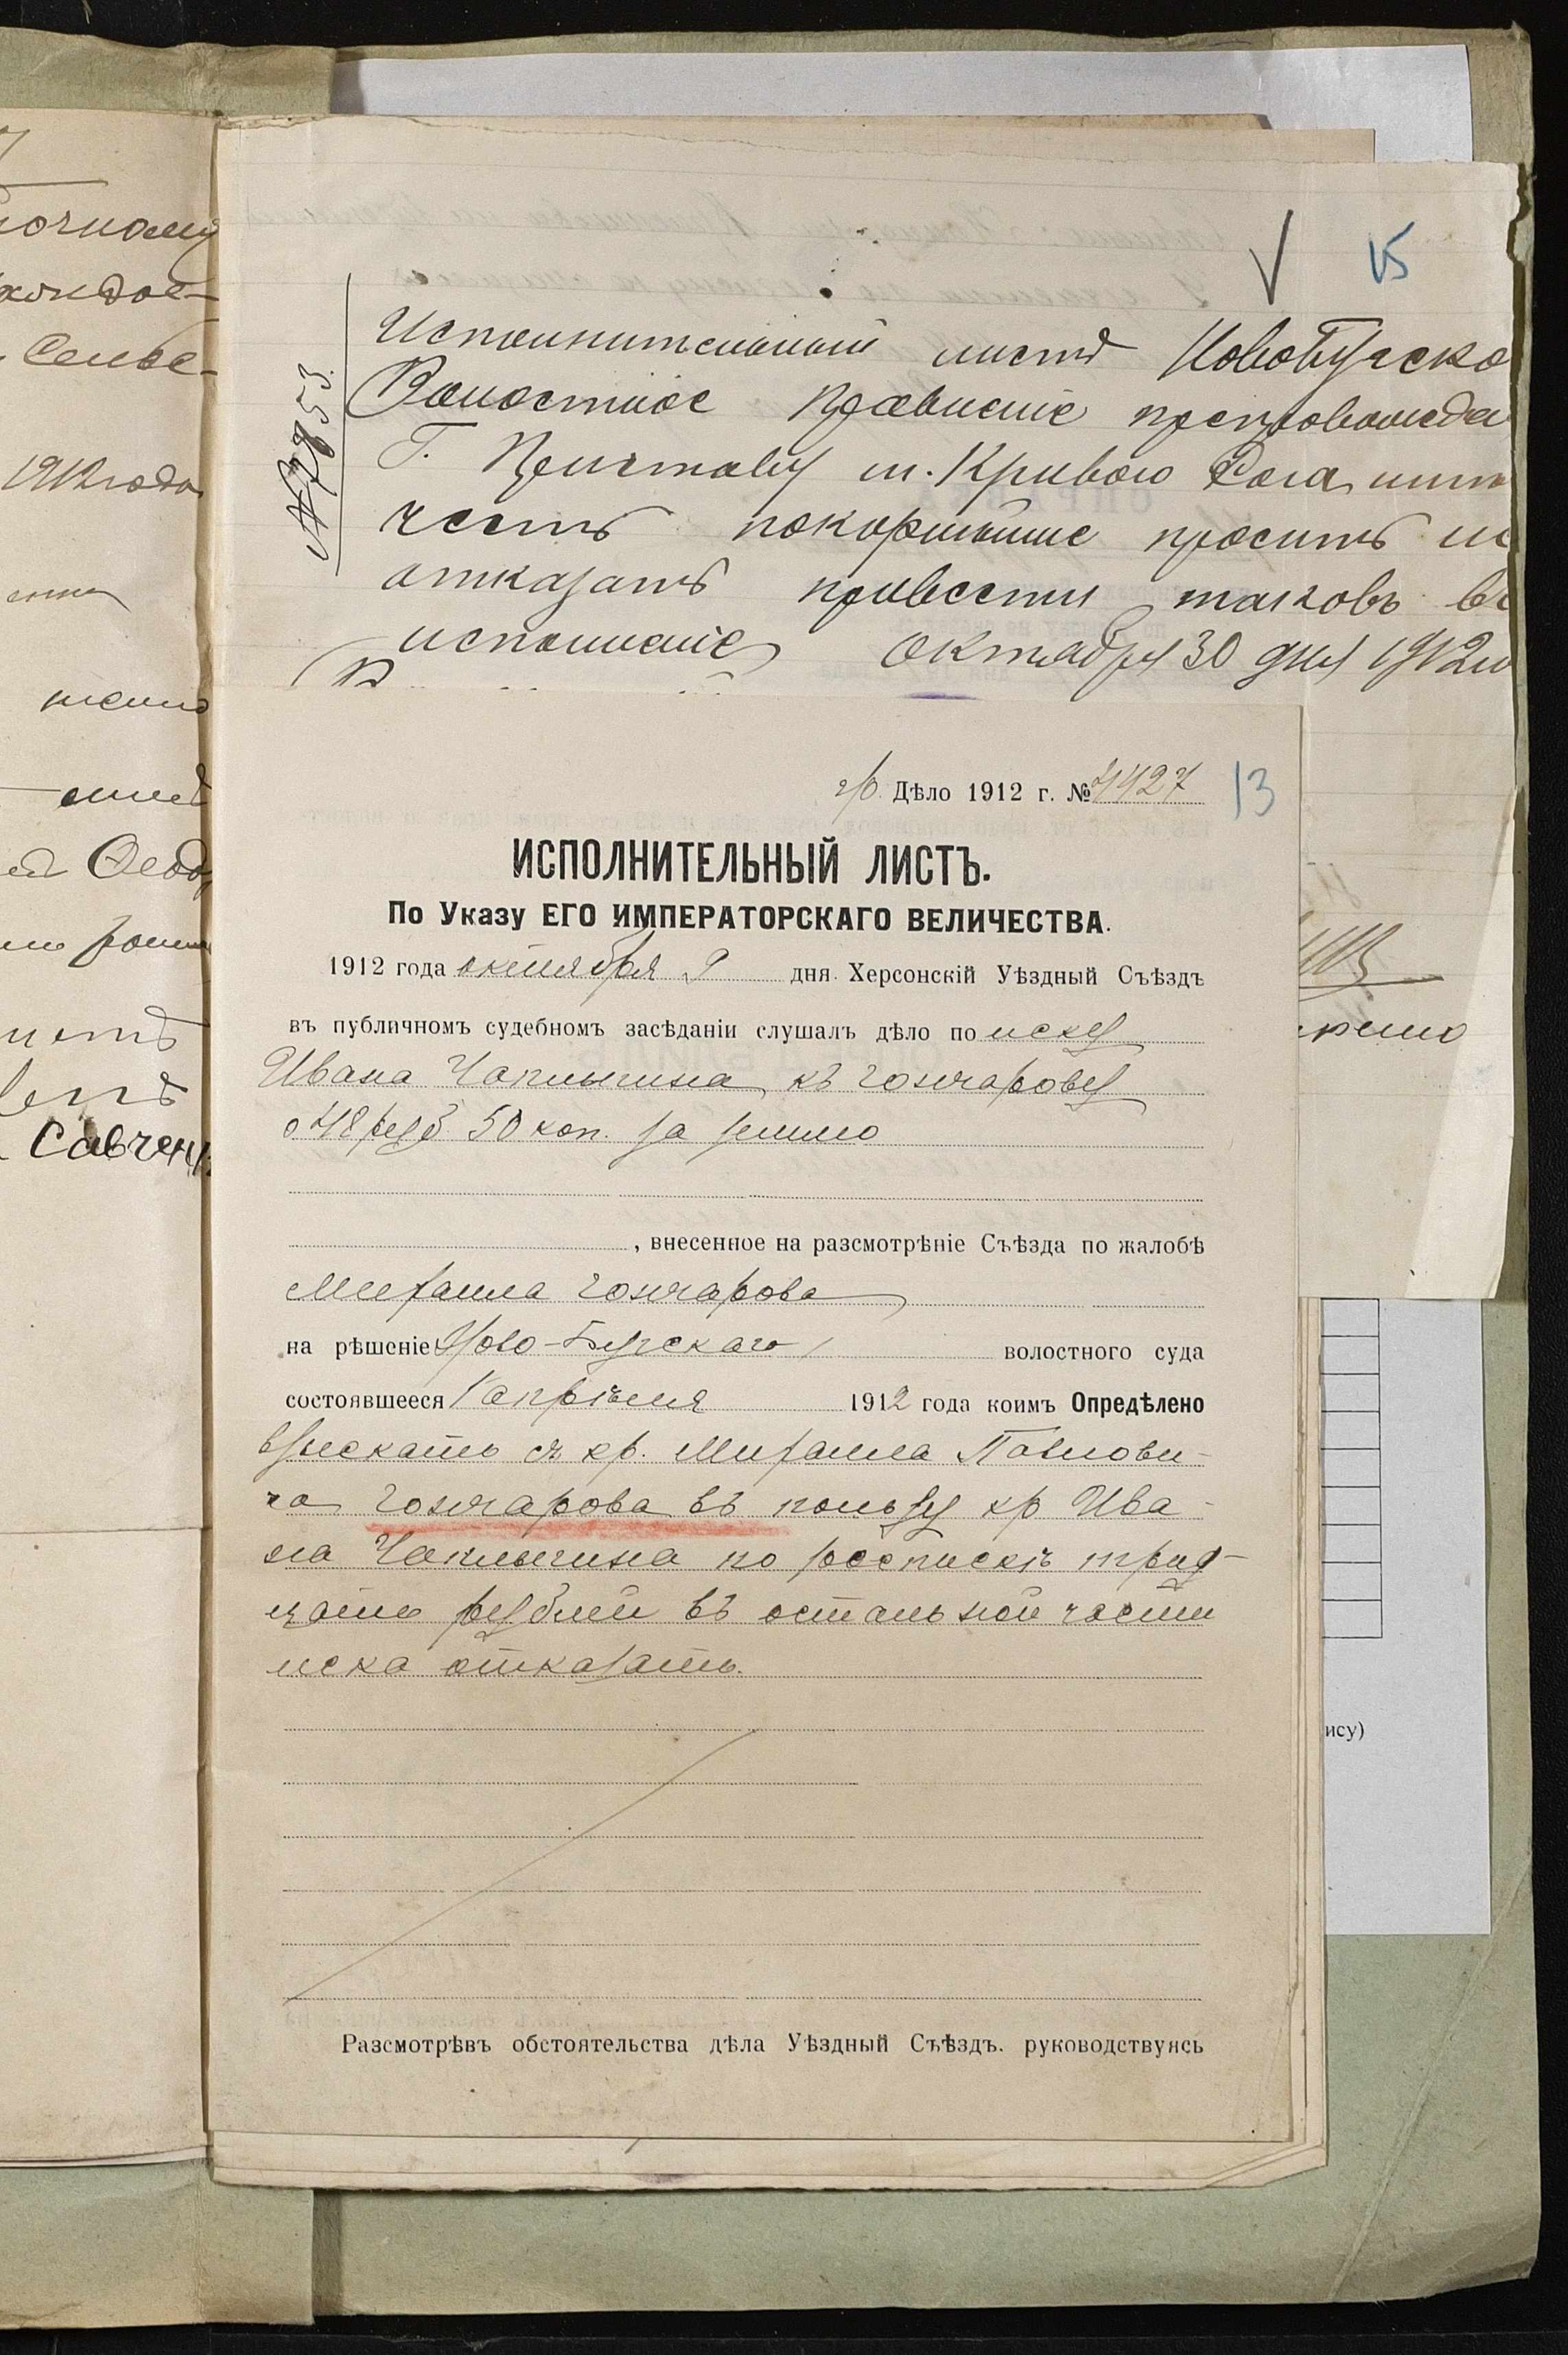 очному
Сель-
1912 года
Ѳеодо
Савчен
15
Исполнительный листъ Новобугско
Волостное Правленіе препровождая
Г. Приставу м. Кривого Рога имѣ
честь покорнѣйше проситъ не
отказать привести таковъ въ
исполненіе Октября 30 дня 1912 го
гр. Дѣло 1912 г. № 4427
13
ИСПОЛНИТЕЛЬНЫЙ ЛИСТЪ.
По Указу ЕГО ИМПЕРАТОРСКАГО ВЕЛИЧЕСТВА.
1912 года октября 9 дня Херсонскій Уѣздный Съѣздъ
въ публичномъ судебномъ засѣданіи слушалъ дѣло по иску
Ивана Чаплыгина къ Гончарову
о 48 руб 50 коп. за землю
, внесенное на разсмотрѣніе Съѣзда по жалобѣ
Михаила Гончарова
на рѣшеніе Ново-Бугскаго волостного суда
состоявшееся 1 апрѣля 1912 года коимъ Опредѣлено
взыскать съ кр. Михаила Павлови-
ча Гончарова въ пользу кр Ива-
на Чаплыгина по роспискѣ трид-
цать рублей въ остальной части
иска отказать.
Разсмотрѣвъ обстоятельства дѣла Уѣздный Съѣздъ. руководствуясь
ису)